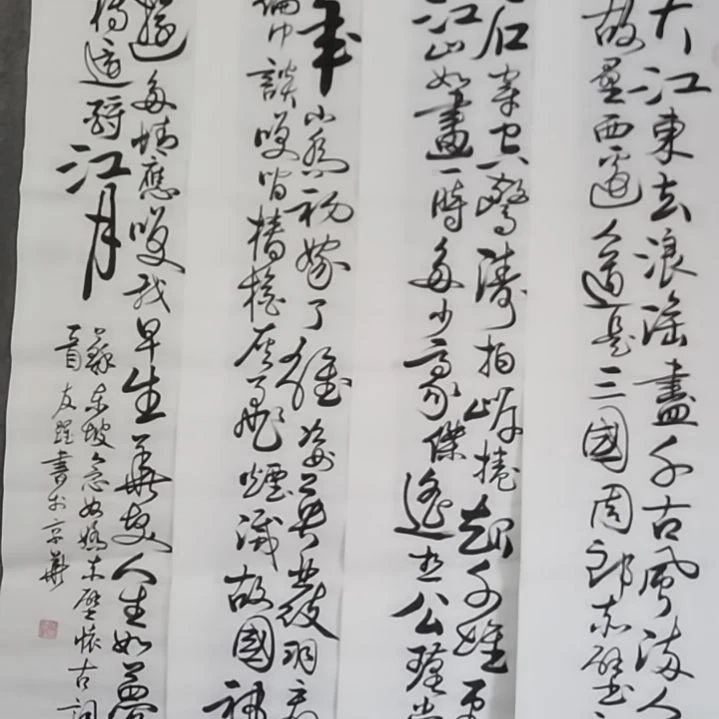 大江東去浪淘盡千古風流人
故壘西邊人道是三國周郎赤壁
石穿空驚濤拍岸捲起千堆雪
江山如畫一時多少豪傑遙想公瑾當
年小喬初嫁了雄姿英發羽扇
綸巾談笑間檣櫓灰飛煙滅故國神
遊多情應笑我早生華髮人生如夢
樽還酹江月
蘇東坡念奴嬌赤壁懷古詞
友 書於京華